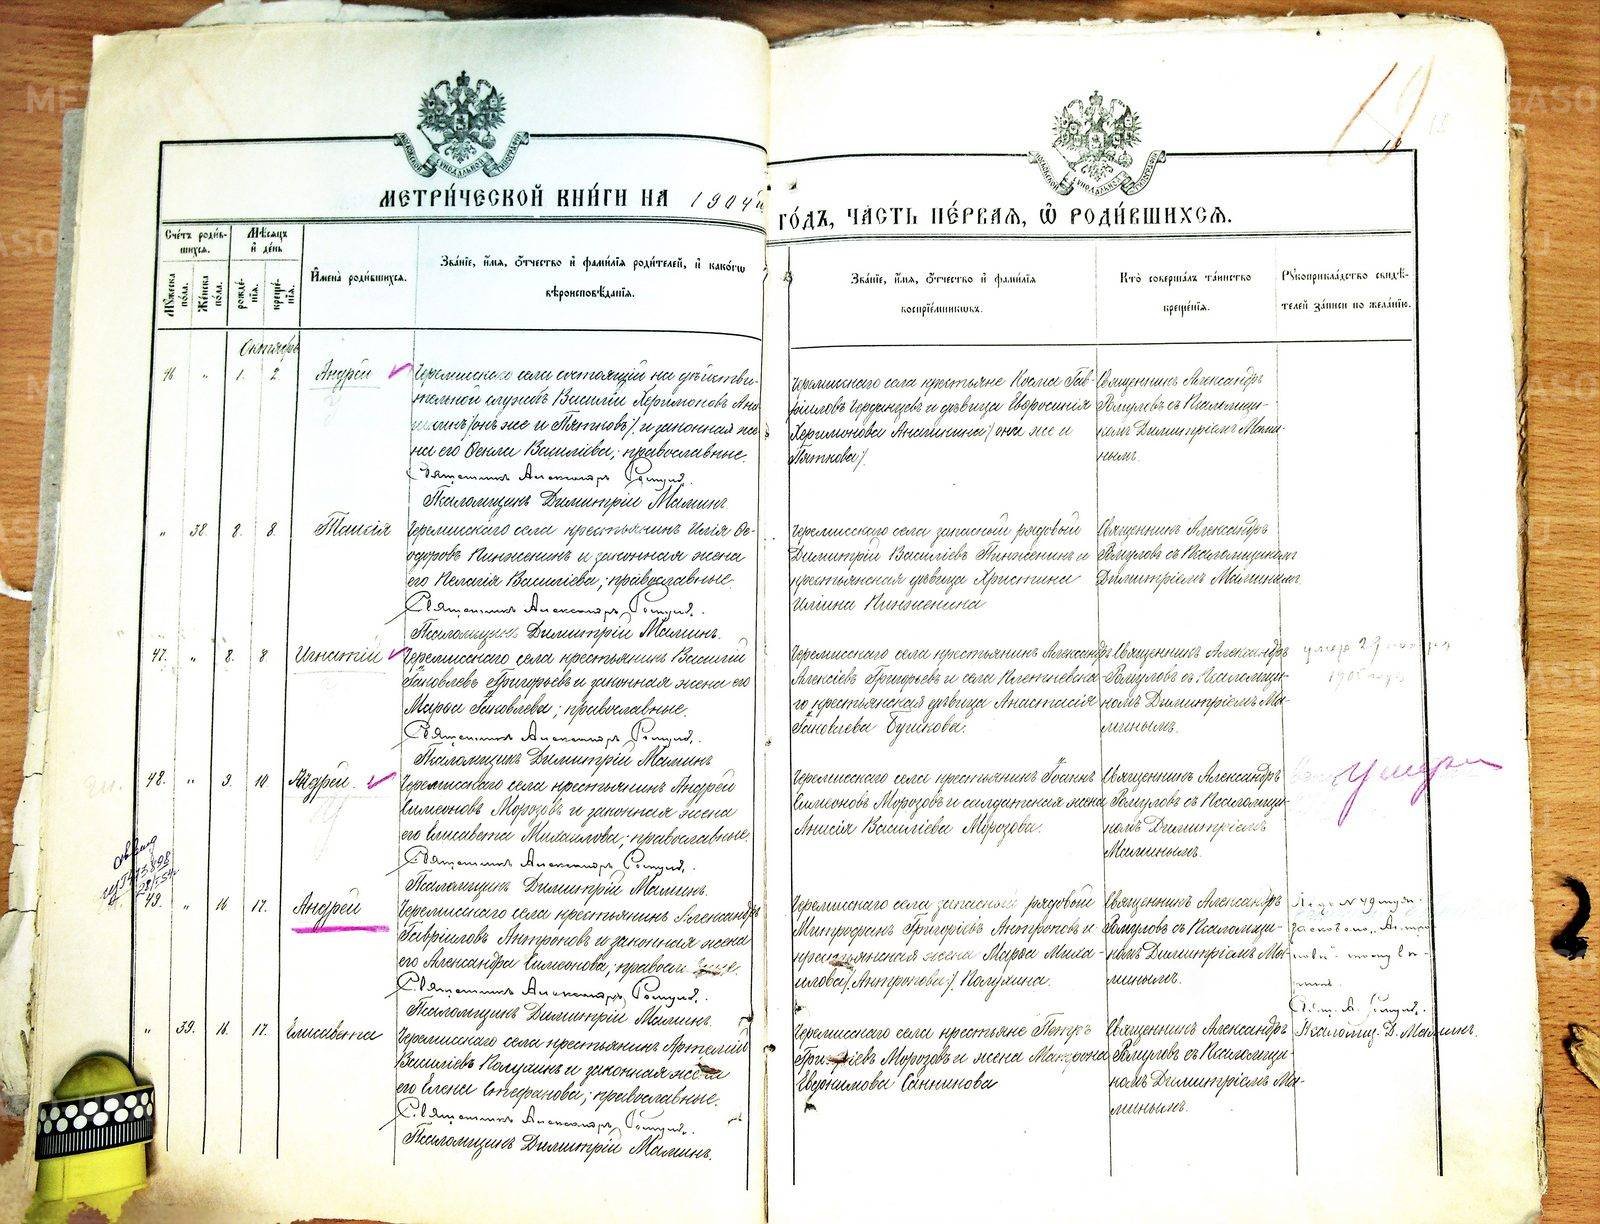 МЕТРИ́ЧЕСКОЙ КНИ́ГИ НА 1904й
ГО́ДЪ, ЧА́СТЬ ПЕ́РВАЯ, Ѽ РОДИ́ВШИХСЯ.
МОСКОВСКОЙ СИНОДАЛЬНОЙ ТИПОГРАФІИ
МОСКОВСКОЙ СИНОДАЛЬНОЙ ТИПОГРАФІИ
19
18
Сче́тъ роди́в-
шихся.
Мѣ́сяцъ
и҆ де́нь
Мꙋ́жеска
по́ла.
Же́нска
по́ла.
рожде́-
нїя.
креще́-
нїя.
И҆мена̀ роди́вшихся.
Зва́нїе, и҆́мя, ѻ҆́тчество и҆ фами́лїя роди́телей, и҆ како́гѡ
вѣроисповѣ́данїя.
Зва́нїе, и҆́мя, ѻ҆́тчество и҆ фами́лїя
воспрїе́мникѡвъ.
Кто̀ соверша́лъ та́инство
креще́нїя.
Рꙋкоприкла́дство свидѣ́-
телей за́писи по жела́нїю.
Октябрь
46. " 1. 2. Андрей
Черемисскаго села состоящій на дѣйстви-
тельной службѣ Василій
(онъ же и Пятковъ) и законная же-
на его Ѳекла Васильева; православные.
Священникъ Александръ Ромуловъ.
Псаломщикъ Димитрій Маминъ.
Черемисскаго села крестьяне Косма Гав-
рииловъ и дѣвица Евфросинія
(она же и
Пяткова).
Священникъ Александръ
Ромуловъ съ Псаломщи-
комъ Димитріемъ Мами-
нымъ.
" 38. 8. 8. Таисія
Черемисскаго села крестьянинъ Илія Ѳе-
одоровъ Пинженинъ и законная жена
его Пелагія Васильева; православные.
Священникъ Александръ Ромуловъ.
Псаломщикъ Димитрій Маминъ.
Черемисскаго села запасной рядовой
Димитрій Васильевъ Пинженинъ и
крестьянская дѣвица Христина
Иліина Пинженина
Священникъ Александръ
Ромуловъ съ Псаломщикомъ
Димитріемъ Маминымъ.
47. " 8. 8 Игнатій
Черемисскаго села крестьянинъ Василій
Іаковлевъ Григорьевъ и законная жена его
Марѳа Іаковлева; православные.
Священникъ Александръ Ромуловъ.
Псаломщикъ Димитрій Маминъ
Черемисскаго села крестьянинъ Александръ
Алексіевъ Григорьевъ и села
го крестьянская дѣвица Анастасія
Іаковлева
Священникъ Александръ
Ромуловъ съ Псаломщи-
комъ Димитріемъ Ма-
минымъ.
умеръ 29
48. " 9. 10. Андрей.
Черемисскаго села крестьянинъ Андрей
Симеоновъ Морозовъ и законная жена
его Елисавета Михаилова; православные.
Священникъ Александръ Ромуловъ.
Псаломщикъ Димитрій Маминъ.
Черемисскаго села крестьянинъ Іоаннъ
Симеоновъ Морозовъ и солдатская жена
Анисія Васильева Морозова.
Священникъ Александръ
Ромуловъ съ Псаломщи-
комъ Димитріемъ
Маминымъ.
умеръ
49. " 16 17. Андрей
Черемисскаго села крестьянинъ Александръ
Гавріиловъ Антроповъ и законная жена
его Александра Симеонова; православные.
Священникъ Александръ Ромуловъ.
Псаломщикъ Димитрій Маминъ.
Черемисскаго села запасный рядовой
Митрофанъ Григоріевъ Антроповъ и
крестьянская жена Марѳа Миха-
илова (Антропова) Колунина.
Священникъ Александръ
Ромуловъ съ Псаломщи-
комъ Димитріемъ Ма-
минымъ.
Псаломщ. Д. Маминъ.
" 39. 16. 17. Елисавета
Черемисскаго села крестьянинъ Артемій
Васильевъ Колунинъ и законная жена
его Елена Стефанова; православные.
Священникъ Александръ Ромуловъ.
Псаломщикъ Димитрій Маминъ.
Черемисскаго села крестьяне Петръ
Григоріевъ Морозовъ и жена Матрона
Евфимова Санникова
Священникъ Александръ
Ромуловъ съ Псаломщи-
комъ Димитріемъ Ма-
минымъ.